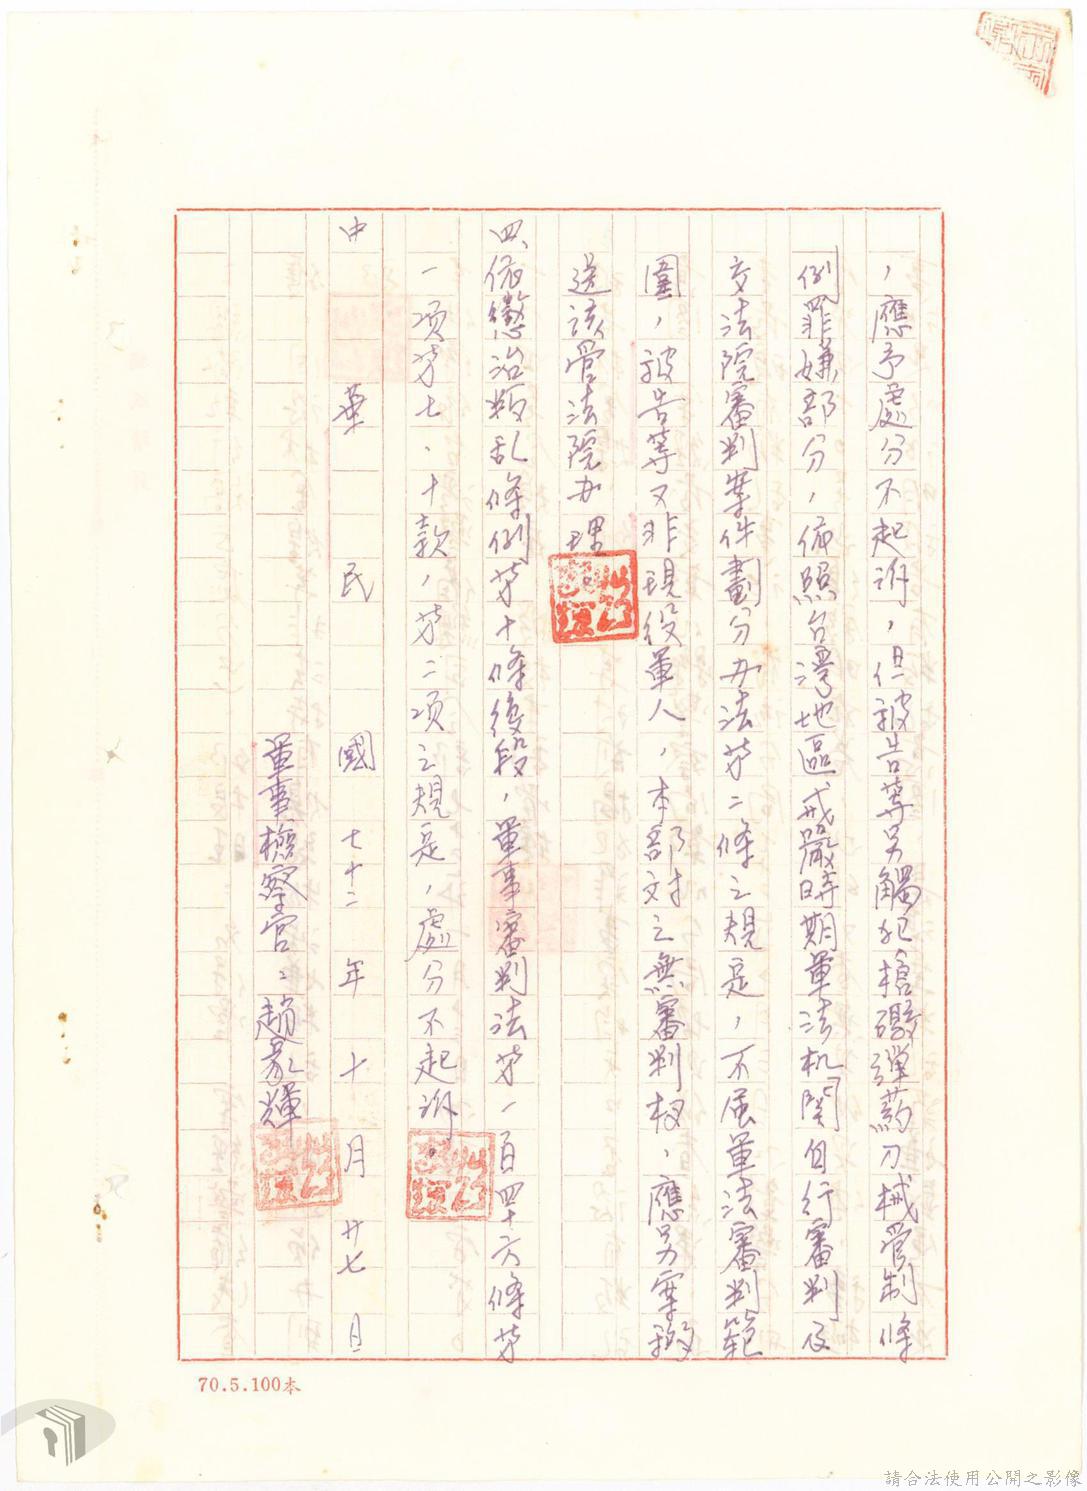 ，應予處分不起訴，但被告等另觸犯槍礮彈藥刀械管制條
例罪嫌部分，依照台灣地區戒嚴時期軍法机関自行審判及
交法院審判案件劃分办法苐二條之規定，不屬軍法審判範
圍，被告等又非現役軍人，本部对之無審判权，應另案移
送該管法院办理。
四、依懲治叛乱條例苐十條後段，軍事審判法苐一百四十六條苐
一項苐七、十款，苐二項之規定，處分不起訴。
中華民國七十二年十月廿七日
軍事檢察官：趙
70.5.100本
請合法使用公開之影像